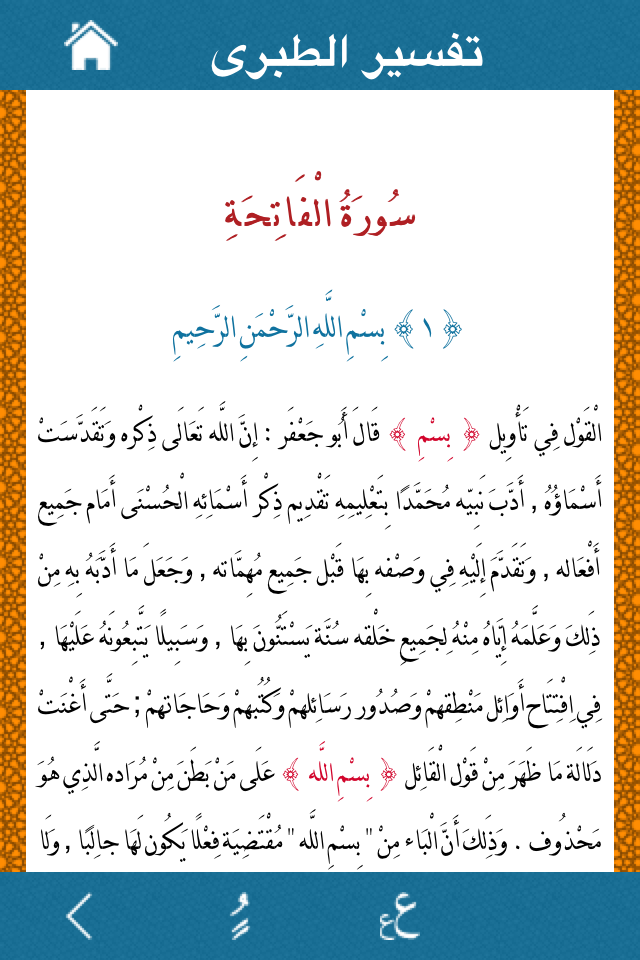 تفسير الطبرى
سُورَةُ الْفَاتِحَةِ
﴿ ١ ﴾ بِسْمِ اللَّهِ الرَّحْمَنِ الرَّحِيمِ
الْقَوْل فِي تَأْوِيل ﴿ بِسْمِ ﴾ قَالَ أَبُو جَعْفَر : إِنَّ اللَّه تَعَالَى ذِكْره وَتَقَدَّسَتْ
أَسْمَاؤُهُ , أَدَّبَ نَبِيّه مُحَمَّدًا بِتَعْلِيمِهِ تَقْدِيم ذِكْر أَسْمَائِهِ الْحُسْنَى أَمَام جَمِيع
أَفْعَاله , وَتَقَدَّمَ إِلَيْهِ فِي وَصْفه بِهَا قَبْل جَمِيع مُهِمَّاته , وَجَعَلَ مَا أَدَّبَهُ بِهِ مِنْ
ذَلِكَ وَعَلَّمَهُ إِيَّاهُ مِنْهُ لِجَمِيعِ خَلْقه سُنَّة يَسْتَنُّونَ بِهَا , وَسَبِيلًا يَتَّبِعُونَهُ عَلَيْهَا ,
فِي اِفْتِتَاح أَوَائِل مَنْطِقهمْ وَصُدُور رَسَائِلهمْ وَكُتُبهمْ وَحَاجَاتهمْ ; حَتَّى أَغْنَتْ
دَلَالَة مَا ظَهَرَ مِنْ قَوْل الْقَائِل ﴿ بِسْمِ اللَّه ﴾ عَلَى مَنْ بَطَنَ مِنْ مُرَاده الَّذِي هُوَ
مَحْذُوف . وَذَلِكَ أَنَّ الْبَاء مِنْ " بِسْمِ اللَّه " مُقْتَضِيَة فِعْلًا يَكُون لَهَا جالِبًا , وَلَا
ع ع